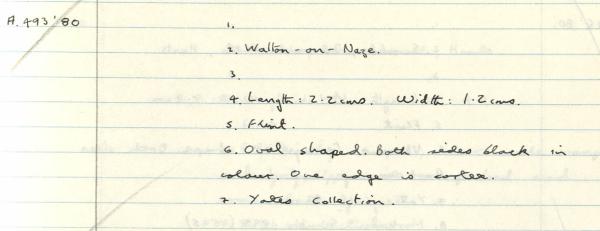 A.493'80
1.
2. Walton-on-Naze.
3.
4. Length: 2.2 cms. Width: 1.2 cms.
5. Flint.
6. Oval shaped. Both sides black in
colour. One edge is cortex.
7. Yates Collection.